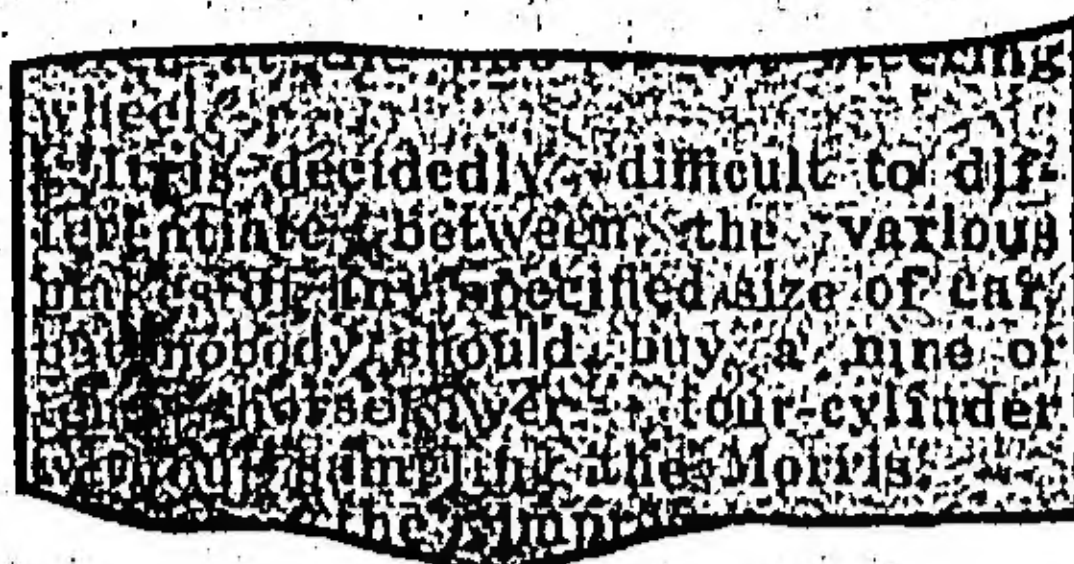 steering
wheel.
It is decidedly difficult to dif-
ferentiate between the various
makes of any specified size of car
but nobody should buy a nine or
horsepower four-cylinder
without sampling the Morris.
the